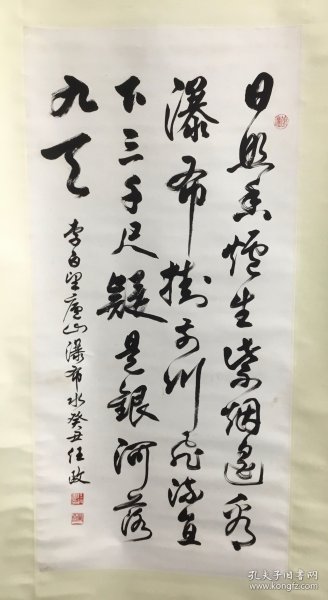 日照香炉生紫烟遥看
瀑布挂前川飞流直
下三千尺疑是银河落
九天
李白望庐山瀑布水癸丑任政
孔夫子旧书网